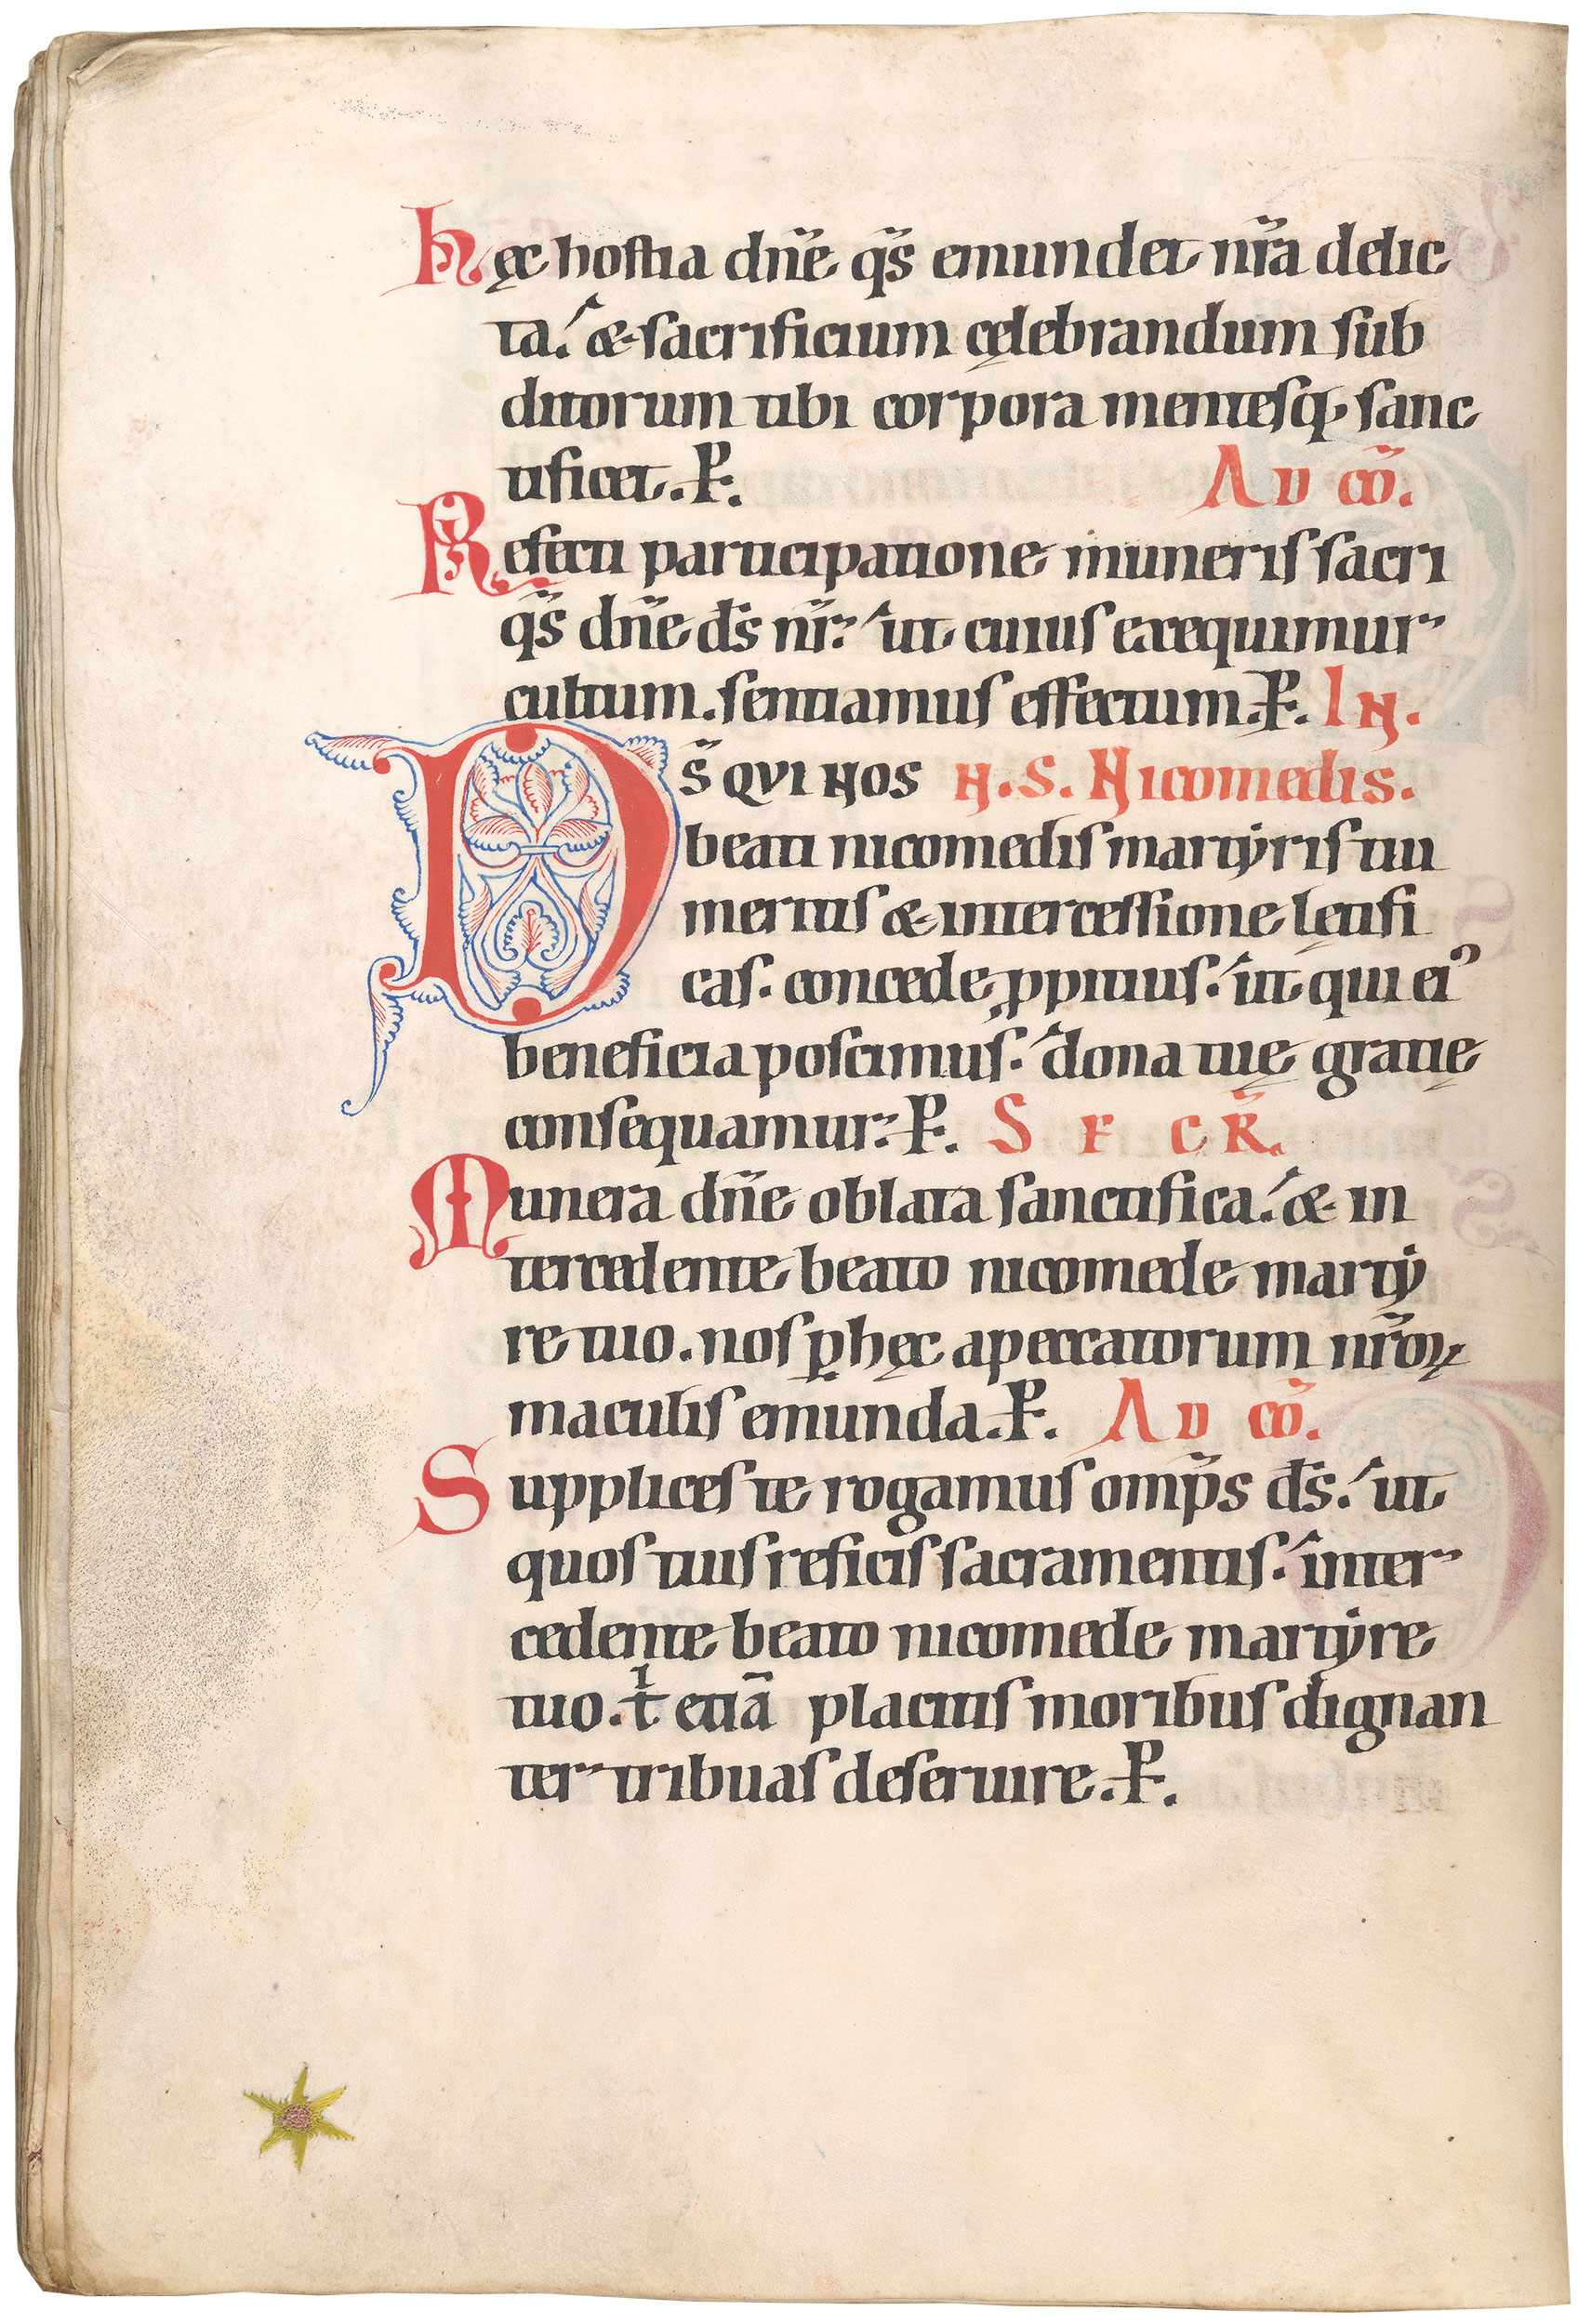 Hęc hostia dn̄e q̄s emundet nr̄a delic
ta. & sacrificium cęlebrandum sub
ditorum tibi corpora mentesq; sanc
tificet. P̱.
AD CŌ.
Refecti participatione muneris sacri
q̄s dn̄e d̄s nr̄. ut cuius exequimur
cultum. sentiamus effectum. P̱. IN.
D̄S QVI NOS N. S. Nicomedis.
beati nicomedis martẏris tui
meritis & intercessione lętifi
cas. concede ꝓpitius. ut qui eiꝰ
beneficia poscimus. dona tuę gratię
consequamur. P̱. S F CR̄.
Munera dn̄e oblata sanctifica. & in
tercedente beato nicomede martẏ
re tuo. nos ꝑ hęc a peccatorum nr̄oꝝ
maculis emunda. P̱. AD CŌ.
Supplices te rogamus omp̄s d̄s. ut
quos tuis reficis sacramentis. inter
cedente beato nicomede martẏre
tuo. t etiā placitis moribus dignan
ter tribuas deseruire. P̱.